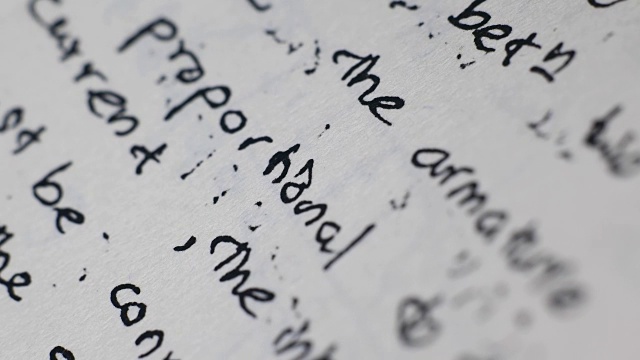 betn
the armature
proportional to
current , the
be. con